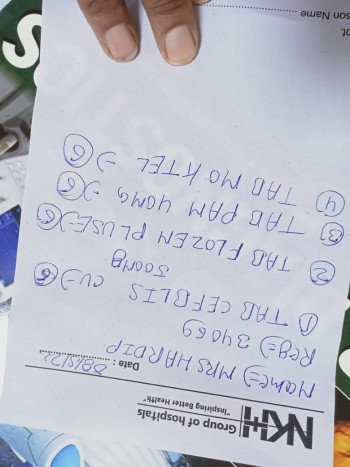 NKH Group of hospitals
"Inspiring Better Health"
Date : 08/5/22
Name=) MRS HARDIP
Reg=) 34059
① TAB CEFBLIS CV=) ⑥
500mg
② TAB FLOZEN PLUSE=) ⑥
③ TAB PAM 40MG =) ⑥
④ TAB MOKTEL =) ⑥
son Name
pt.